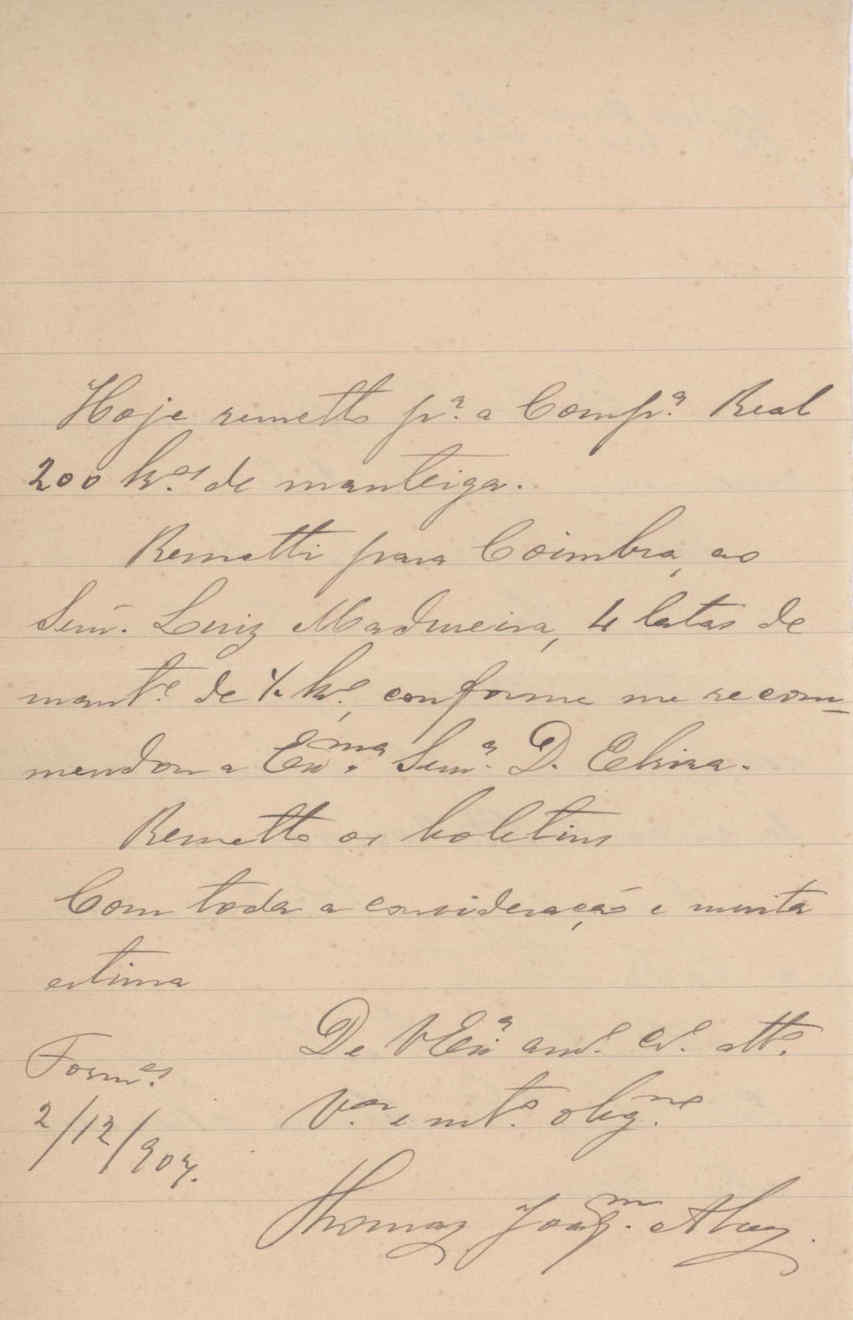 Hoje remetto pª. a Compª. Real
200 k.os de manteiga.
Remetti para Coimbra, ao
Senr. Luiz Madureira, 4 latas de
mant.e de ½ k.o, conforme me recom-
mendou a Ex.ma Senr.ª D. Elvira.
Remetto os boletins
Com toda a consideração e muita
estima
De V Exª am.o cr.o att.o
V.or e mt.o obig.mo
Form.es
2/12/907.
Thomaz Joaq.m Alvez.